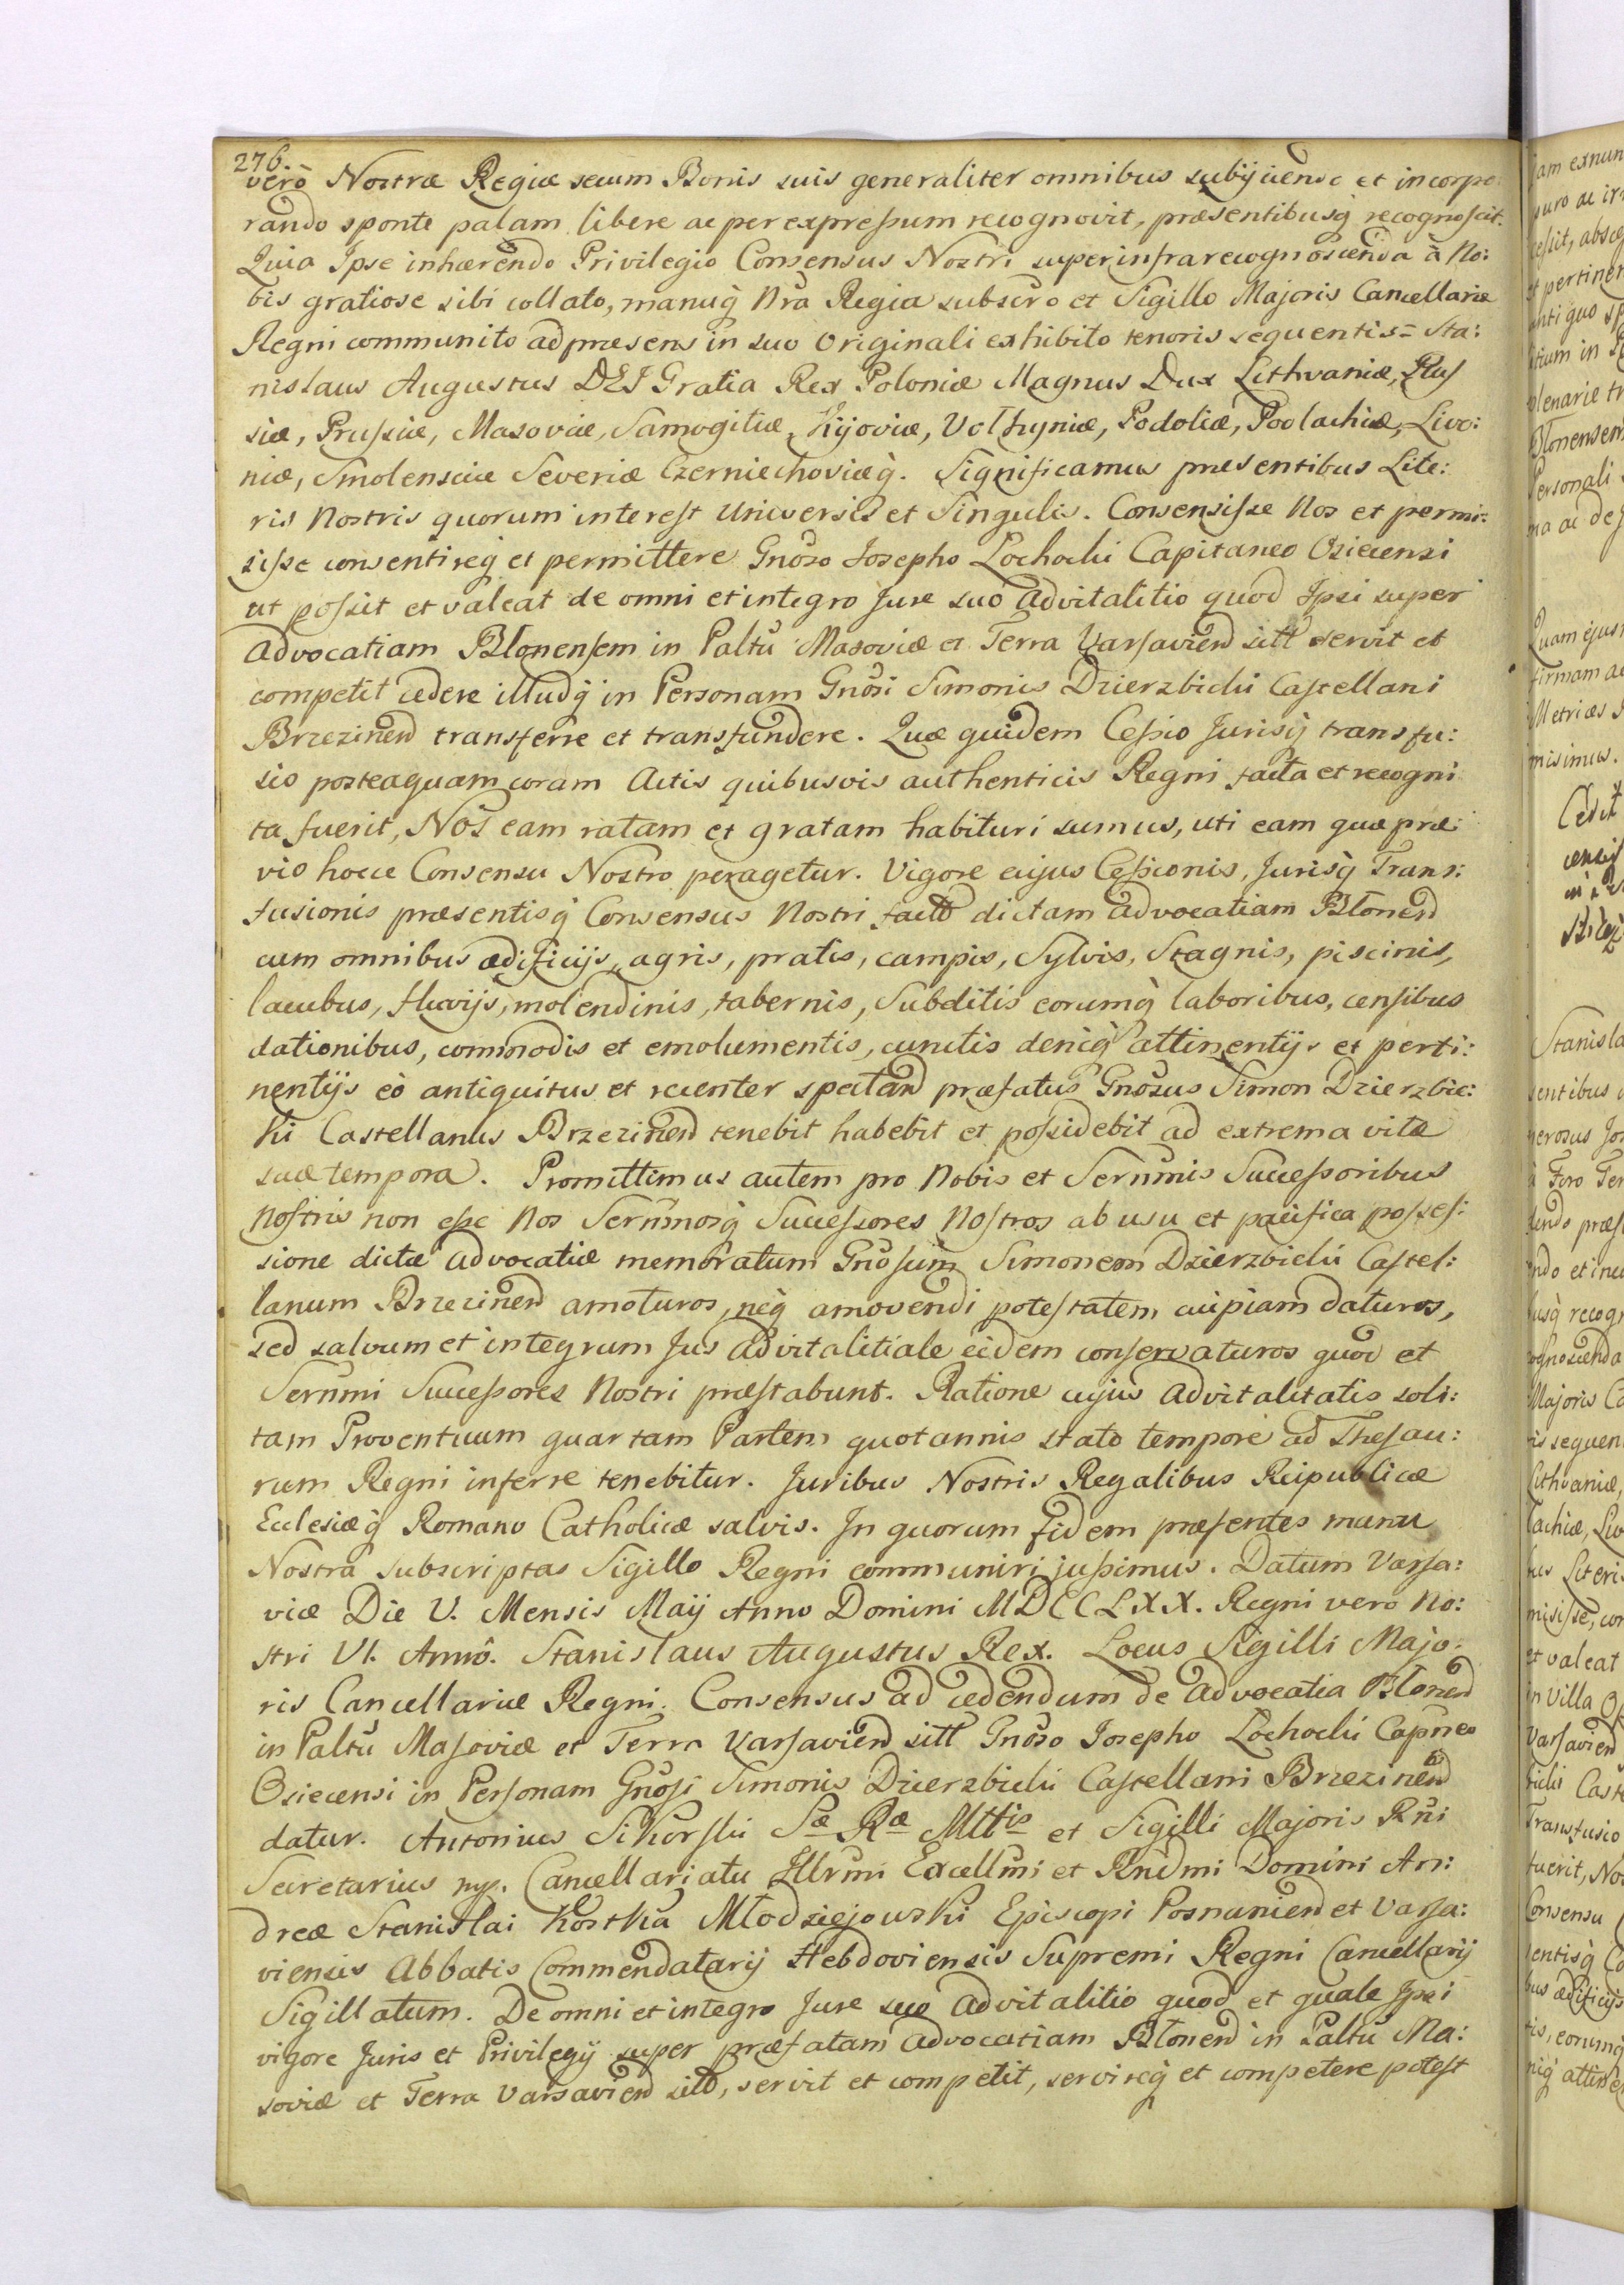 276.
verò Nostræ Regiæ secum Bonis suis generaliter omnibus subijciendo et incorpo:
rando sponte palam libere ac per expreßum recognovit, præsentibusq̀ recognoscit.
Quia Ipse inhærendo Privilegio Consensus Nostri super infrarecognoscenda à No:
bis gratiose sibi collato, manuq̀ Nr̃a Regia subscr̃o et Sigillo Majoris Cancellariæ
Regni communito ad præsens in suo Originali exhibito tenoris sequentis = Sta:
nislaus Augustus DEI Gratia Rex Poloniæ Magnus Dux Lithvaniæ, Rus
siæ, Prußiæ, Masoviæ, Samogitiæ, Kijoviæ, Volhyniæ, Podoliæ, Podlachiæ, Livo:
niæ, Smolensciæ Severiæ Czerniechoviæq̀. Significamus præsentibus Lite:
ris Nostris quorum interest Universis et Singulis. Consensisse Nos et permi:
sisse consentireq̀ et permittere Gnõso Josepho Lochocki Capitaneo Osiecensi
ut possit et valeat de omni et integro Jure suo advitalitio quod Ipsi super
Advocatiam Blonensem in Paltũ Masoviæ et Terra Varsavien̄ sitt̃ servit et
competit cedere illudq̀ in Personam Gnõsi Simonis Dzierzbicki Castellani
Brzezinen̄ transferre et transfundere. Quæ quidem Ceßio Jurisq̀ transfu:
sio posteaquam coram Actis quibusvis authenticis Regni facta et recogni
ta fuerit, Nos eam ratam et gratam habituri sumus, uti eam quæ præ:
vio hocce Consensu Nostro peragetur. Vigore cujus Ceßionis, Jurisq̀ Trans:
fusionis præsentisq̀ Consensus Nostri factt̃ dictam advocatiam Blonen̄
cum omnibus ædificijs, agris, pratis, campis, Sylvis, Stagnis, piscinis,
lacubus, fluvijs, molendinis, tabernis, Subditis eorumq̀ laboribus, censibus
dationibus, commodis et emolumentis, cunctis deniq̀ attinentijs et perti:
nentijs eò antiquitus et recenter spectan̄ præfatus Gnõsus Simon Dzierzbic:
ki Castellanus Brzezinen̄ tenebit habebit et poßidebit ad extrema vitæ
suæ tempora. Promittimus autem pro Nobis et Sernm̃is Succeßoribus
Nostris non eße Nos Sernm̃osq̀ Succeßores Nostros ab usu et pacifica posses:
sione dictæ advocatiæ memoratum Gnõsum Simonem Dzierzbicki Castel:
lanum Brzezinen̄ amoturos, neq̀ amovendi potestatem cuipiam daturos,
sed salvum et integrum Jus advitalitiale eidem conservaturos quod et
Sernm̃i Succeßores Nostri præstabunt. Ratione cujus advitalitatis soli:
tam Proventuum quartam Partem quotannis stato tempore ad Thesau:
rum Regni inferre tenebitur. Juribus Nostris Regalibus Reipublicæ
Ecclesiæq̀ Romano Catholicæ salvis. In quorum fidem præsentes manu
Nostra subscriptas Sigillo Regni communiri jußimus. Datum Varsa:
viæ Die V. Mensis Maij Anno Domini MDCCLXX. Regni verò No:
stri VI. Annõ. Stanislaus Augustus Rex. Locus Sigilli Majo:
ris Cancellariæ Regni. Consensus ad cedendum de Advocatia Blonen̄
in Paltũ Masoviæ et Terra Varsavien̄ sitt̃ Gnõso Josepho Lochocki Capneo
Osiecensi in Personam Gnõsi Simonis Dzierzbicki Castellani Brzezinen̄
datur. Antonius Sikorski Sæ Ræ Mttis et Sigilli Majoris Rñi
Secretarius mp. Cancellariatu Illrm̃i Excellm̃i et Rnd̃mi Domini An:
dreæ Stanislai Kostka Młodziejowski Episcopi Posnanien̄ et Varsa:
viensis Abbatis Commendatarij Hebdoviensis Supremi Regni Cancellarij
Sigillatum. De omni et integro Jure suo advitalitio quod et quale Ipsi
vigore Juris et Privilegij super præfatam advocatiam Blonen̄ in Paltũ Ma:
soviæ et Terra Varsavien̄ sitt̃, servit et competit, servireq̀ et competere potest